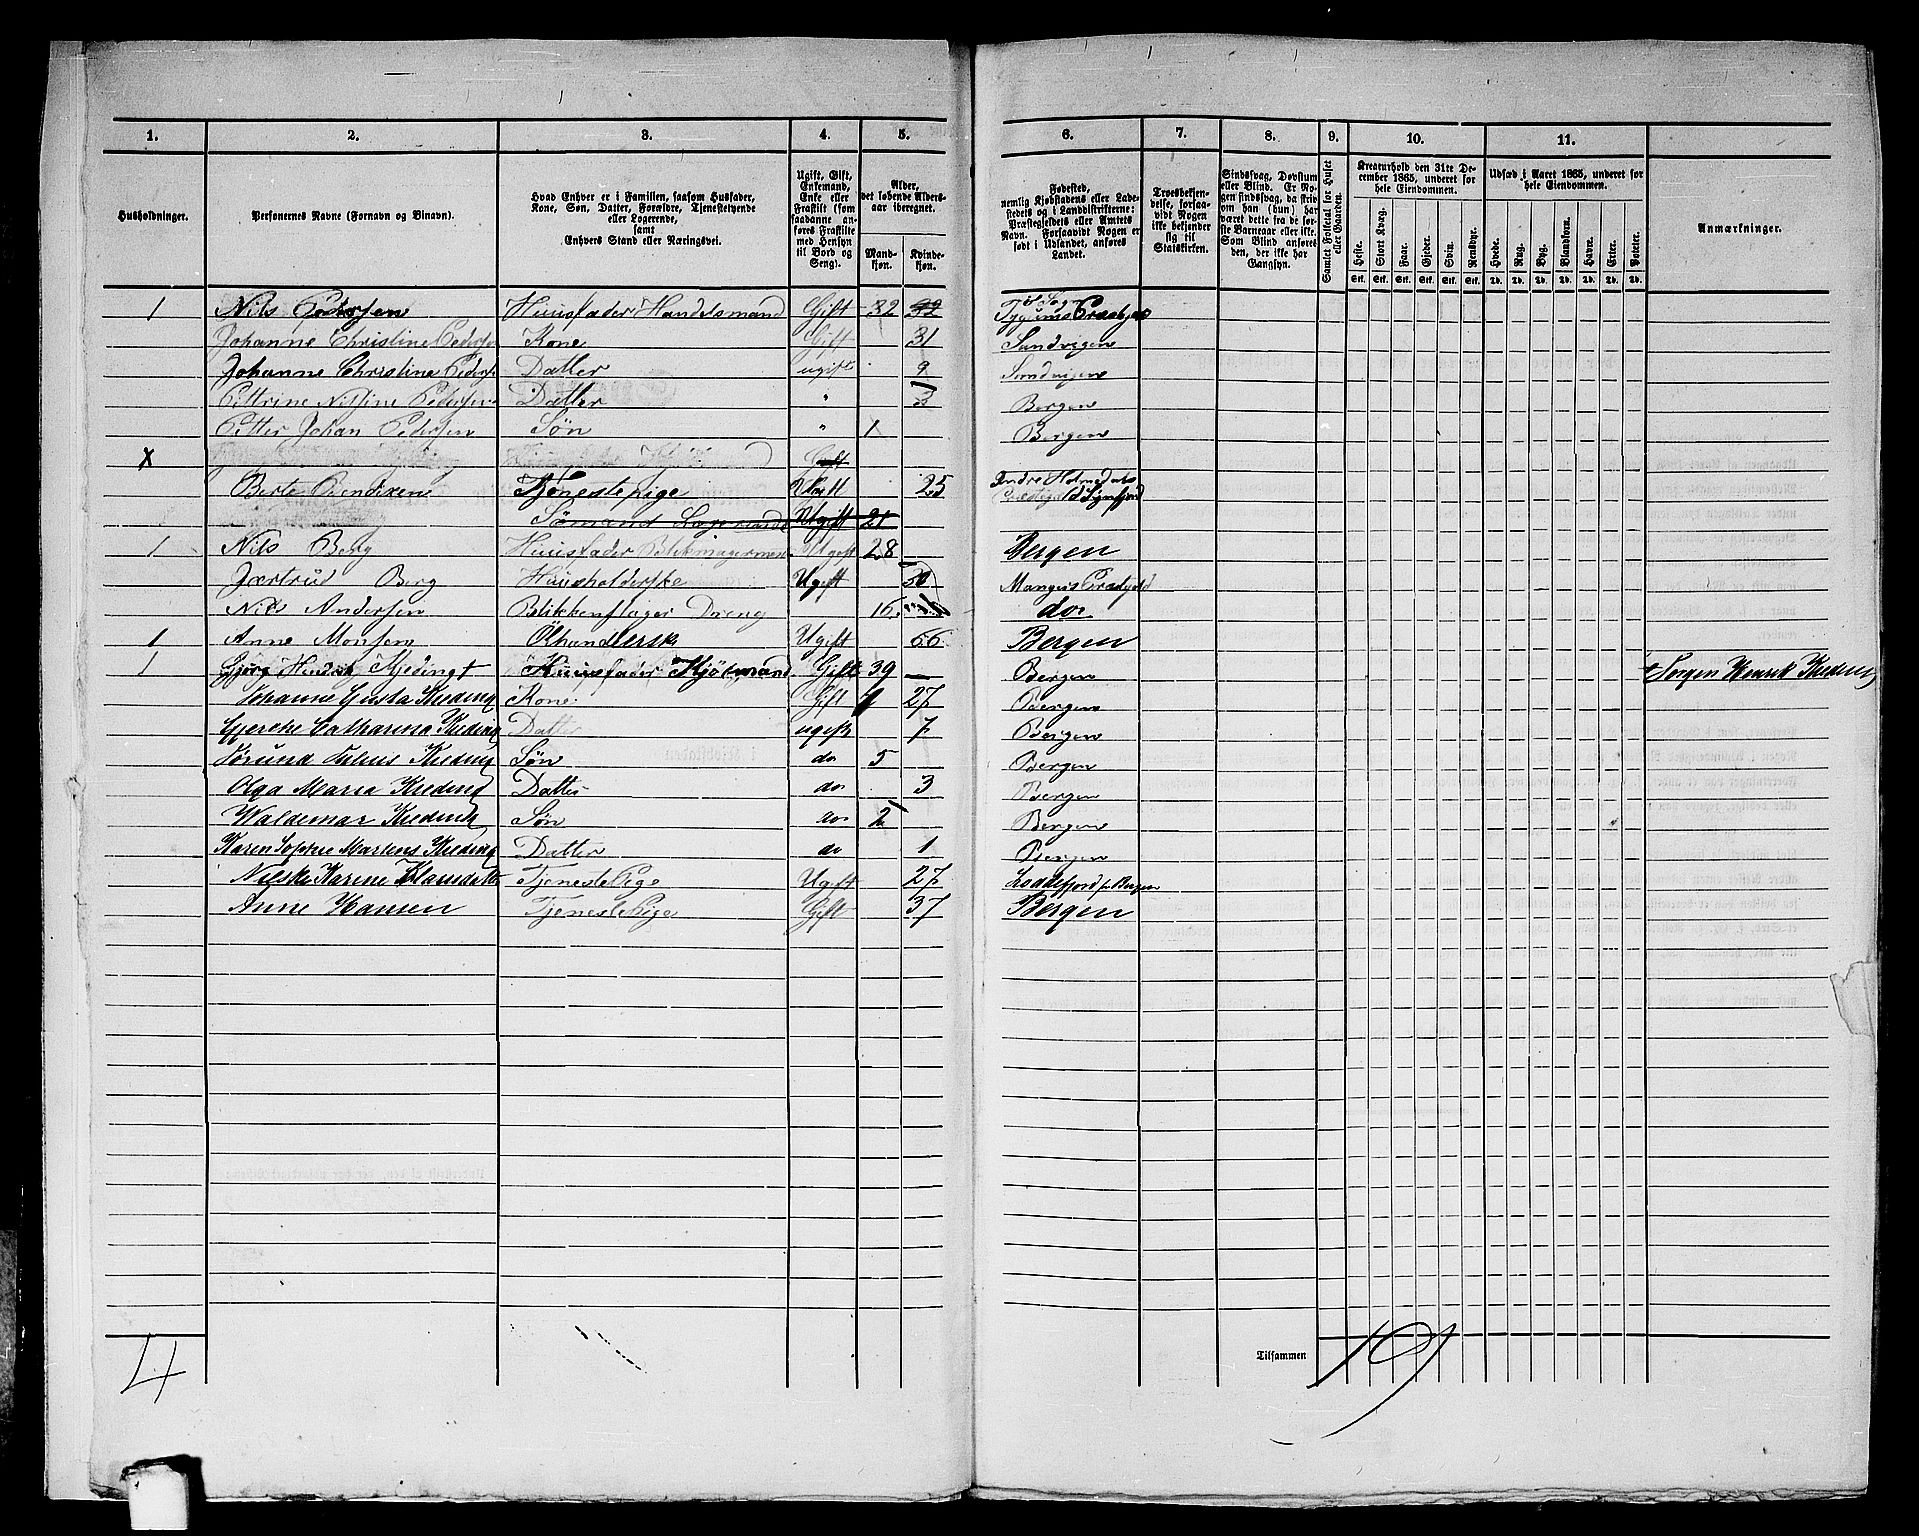 1. 2. 3. 4. 5. 6. 7. 8. 9. 10. 11.
Husholdninger.
Personernes Navne (Fornavn og Binavn).
Hvad Enhver er i Familien, saasom Husfader,
Kone, Søn, Datter, Forældre, Tjenestetyende
eller Logerende,
samt
Enhvers Stand eller Næringsvei.
Ugift, Gift,
Enkemand,
Enke eller
Fraskilt (som
saadanne an-
føres Fraskilte
med Hensyn
til Bord og
Seng).
Alder,
det løbende Alders-
aar iberegnet.
Mand-
kjøn.
Kvinde-
kjøn.
Fødested,
nemlig Kjøbstadens eller Lade-
stedets og i Landdistrikterne:
Præstegjeldets eller Amtets
Navn. Forsaavidt Nogen er
født i Udlandet, anføres
Landet.
Troesbekjen-
delse, forsaa-
vidt Nogen
ikke bekjender
sig til
Statskirken.
Sindssvag, Døvstum
eller Blind. Er No-
gen sindssvag, da skriv
om han (hun) har
været dette fra de før-
ste Barneaar eller ikke.
Som Blind anføres
den, der ikke har
Gangsyn.
Samlet Folketal for Huset
eller Gaarden.
Kreaturhold den 31te De-
cember 1865, underet for
hele Eiendommen.
Heste. Stort Kvæg. Faar. Gjeder. Svin. Rensdyr.
Stk. Stk. Stk. Stk. Stk. Stk.
Udsæd i Aaret 1865, underet for
hele Eiendommen.
Hvede. Rug. Byg. Blandkorn. Havre. Erter. Poteter.
Td. Td. Td. Td. Td. Td. Td.
Anmærkninger.
1 Nils Pedersen Huusfader Handelsmand Gift 32 32
Johanne Christine Pedersen Kone Gift 31 Sandvigen
Johanne Christine Peders Datter ugift 9 Sandvigen
Pettrine Nilsine Pedersen Datter " 3 Bergen
Petter Johan Pedersen Søn " 1 Bergen
X Gift
Berte Bendixen Tjenestepige Ugift 25 Indre Holmedals
Sømand Logerende Ugift 21
1 Nils Berg Huusfader Ugift 28 Bergen
Jertrud Berg Huusholderske Ugift 30 Mangers Præstgjeld
Nils Andersen Blikkenslager Dreng 16 do
1 Anne Monsen Ølhandlersk Ugift 66 Bergen
1 Gjørg Hendrik Kjedingt Huusfader Kjøbmand Gift 39 Bergen + Jørgen Henrik Kieding
Johanne Gusta Kieding Kone Gift 27 Bergen
Gjerche Catharina Kieding Datter ugift 7 Bergen
Jørund Kieding Søn do 5 Bergen
Olga Maria Kieding Datter do 3 Bergen
Waldemar Kieding Søn do 2 Bergen
Karen Sophie Martens Kieding Datter do 1 Bergen
Nilske Karine Klausdatt Tjeneste Pige Ugift 27 Loddefjord p Bergen
Anne Hansen Tjeneste Pige Gift 37 Bergen
4
Tilsammen 19